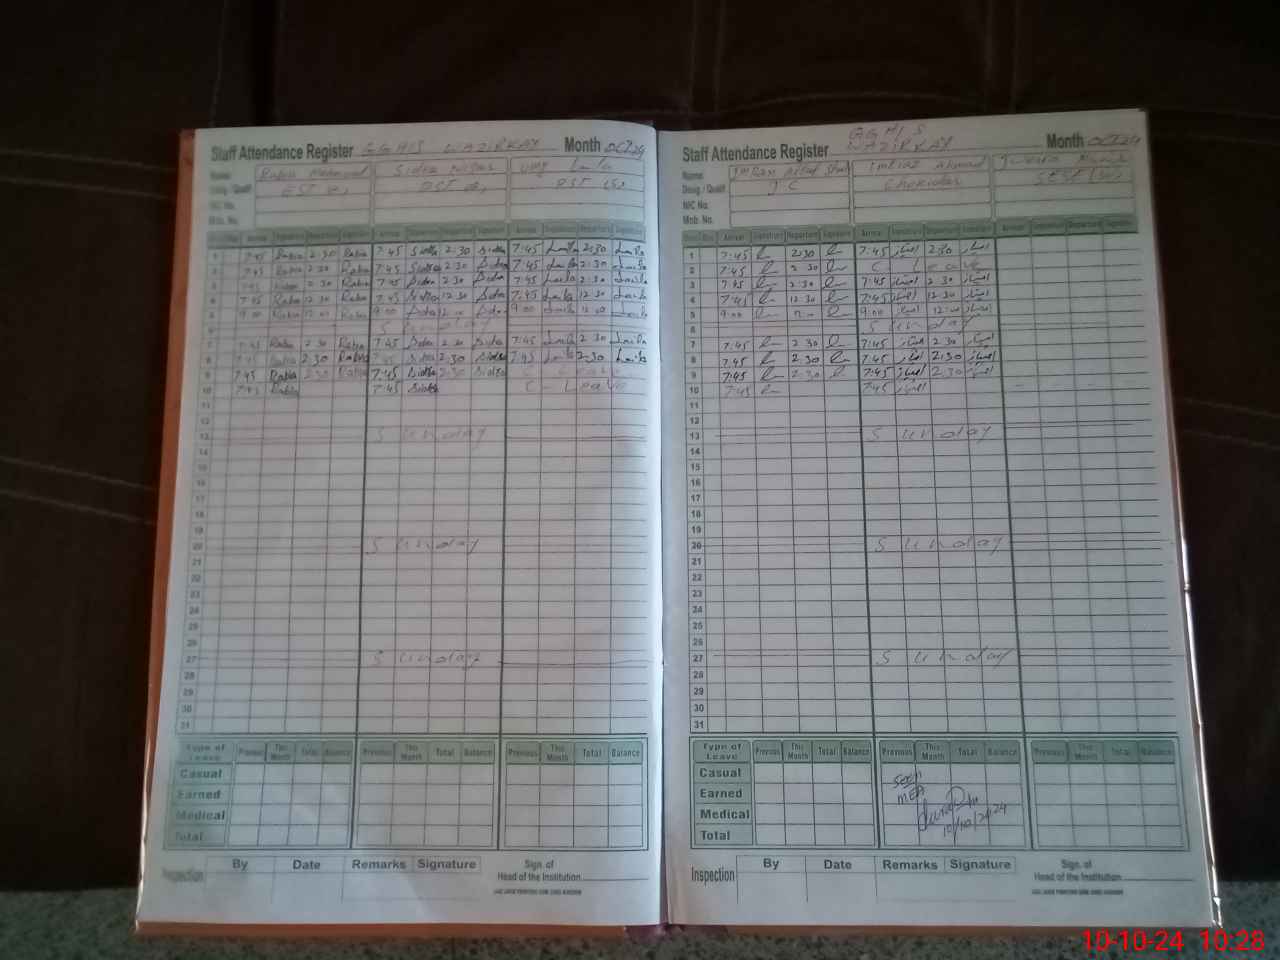 Staff Attendance Register GGHS WAZIRKAY Month OCT 24
Name Rabia Sidra Laila
Desig / Qualif EST PST PST
NIC No.
Mob. No.
Date Day Arrival Signature Departure Signature Arrival Signature Departure Signature Arrival Signature Departure Signature
1 7:45 Rabia 2:30 Rabia 7:45 Sidra 2:30 Sidra 7:45 Laila 2:30 Laila
2 7:45 Rabia 2:30 Rabia 7:45 Sidra 2:30 Sidra 7:45 Laila 2:30 Laila
3 7:45 Rabia 2:30 Rabia 7:45 Sidra 2:30 Sidra 7:45 Laila 2:30 Laila
4 7:45 Rabia 12:30 Rabia 7:45 Sidra 12:30 Sidra 7:45 Laila 12:30 Laila
5 9:00 Rabia 12:00 Rabia 9:00 Sidra 12:00 Sidra 9:00 Laila 12:00 Laila
6 Sunday
7 7:45 Rabia 2:30 Rabia 7:45 Sidra 2:30 Sidra 7:45 Laila 2:30 Laila
8 7:45 Rabia 2:30 Rabia 7:45 Sidra 2:30 Sidra 7:45 Laila 2:30 Laila
9 7:45 Rabia 2:30 Rabia 7:45 Sidra 2:30 Sidra C - Leave
10 7:45 Rabia 7:45 Sidra C - Leave
11
12
13 Sunday
14
15
16
17
18
19
20 Sunday
21
22
23
24
25
26
27 Sunday
28
29
30
31
Type of Leave Previous This Month Total Balance Previous This Month Total Balance Previous This Month Total Balance
Casual
Earned
Medical
Total
Inspection By Date Remarks Signature Sign. of Head of the Institution
GGHS
Staff Attendance Register WAZIRKAY Month OCT 24
Name Imran Altaf Shah Imtiaz Ahmad
Desig / Qualif J C Chokidar SESE
NIC No.
Mob. No.
Date Day Arrival Signature Departure Signature Arrival Signature Departure Signature Arrival Signature Departure Signature
1 7:45 2:30 7:45 امتیاز 2:30 امتیاز
2 7:45 2:30 C Leave
3 7:45 2:30 7:45 امتیاز 2:30 امتیاز
4 7:45 12:30 7:45 امتیاز 12:30 امتیاز
5 9:00 12:00 9:00 امتیاز 12:00 امتیاز
6 Sunday
7 7:45 2:30 7:45 امتیاز 2:30 امتیاز
8 7:45 2:30 7:45 امتیاز 2:30 امتیاز
9 7:45 2:30 7:45 امتیاز 2:30 امتیاز
10 7:45 7:45 امتیاز
11
12
13 Sunday
14
15
16
17
18
19
20 Sunday
21
22
23
24
25
26
27 Sunday
28
29
30
31
Type of Leave Previous This Month Total Balance Previous This Month Total Balance Previous This Month Total Balance
Casual
Earned
Medical
Total
Seen
MEA
10/10/2024
Inspection By Date Remarks Signature Sign. of Head of the Institution
10-10-24 10:28